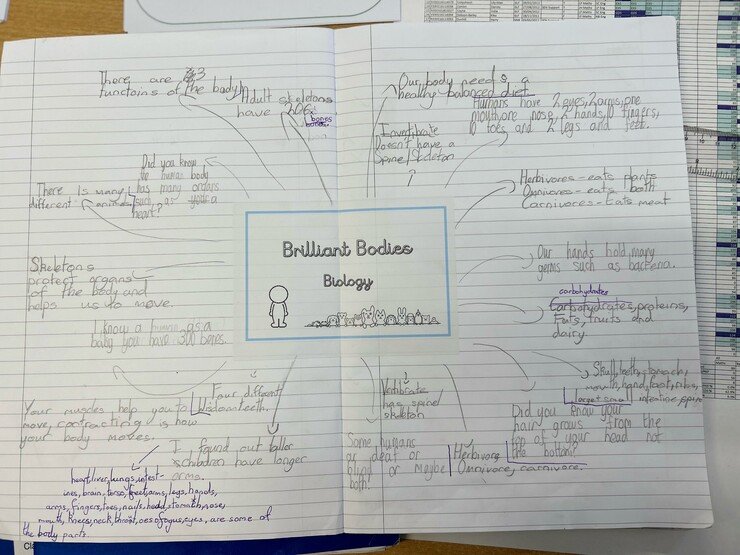 There are 3
functoins of the body
Adult skeletons
have 206
bones
Did you know
the human body
has many organs
such as your a
heart?
There is many
different animals
Skeletons
protect organs
of the body and
helps us to move.
I know a human as a
baby you have 300 bones.
Four different
wisdom teeth.
Your muscles help you to
move, contracting is how
your body moves.
I found out taller
children have longer
arms.
heart, liver, lungs, intest-
ines, brain, torso, feet, arms, legs, hands,
arms, fingers, toes, nails, head, stomach, nose,
mouth, knees, neck, throat, oesofagus, eyes, are some of
the body parts.
Brilliant Bodies
Biology
Our body needs a
healthy balanced diet
Humans have 2 eyes, 2 arms, one
mouth, one nose, 2 hands, 10 fingers,
10 toes and 2 legs and feet.
Invertibrate
Doesn't have a
Spine/skeleton
Herbivores - eats plants
Omnivores - eats both
Carnivores - Eats meat
Our hands hold many
germs such as bacteria.
carbohydrates
Carbohydrates, proteins,
Fats, fruits and
dairy
Skull, teeth, stomach,
mouth, hand, foot, ribs,
large + small intestine, spine
Vertibrate
has spine
skeleton
Did you know your
hair grows from the
top of your head not
the bottom?
Some humans
are deaf or
blind or maybe
both.
Herbivore
Omnivore, carnivore.